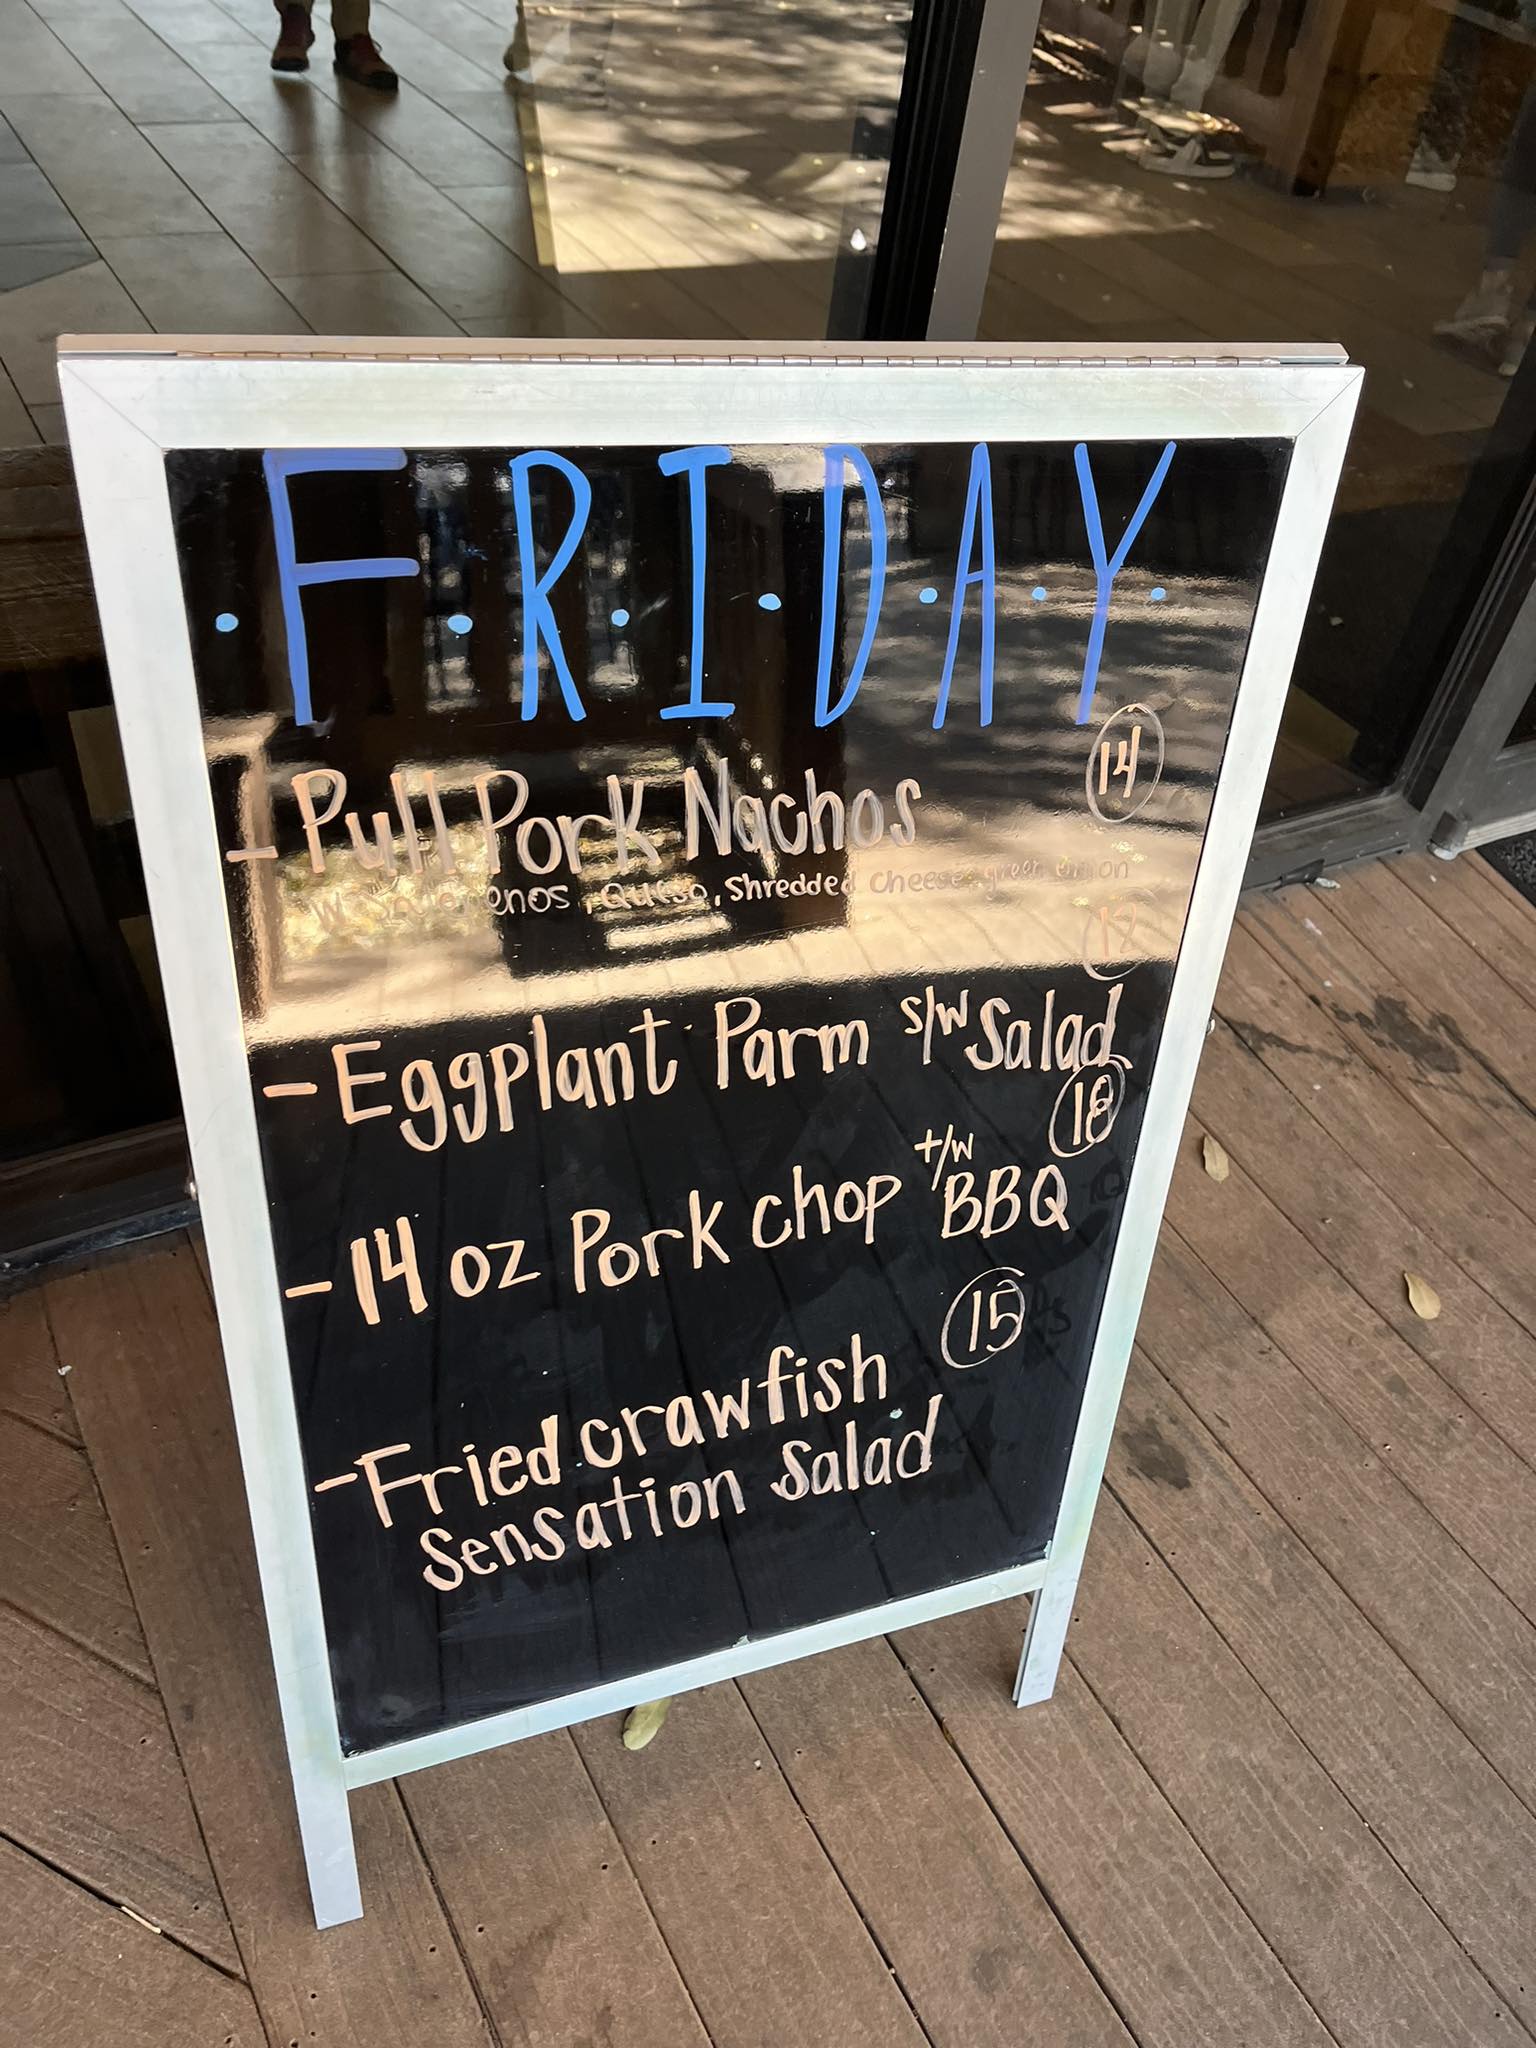 ·F·R·I·D·A·Y·
14
-Pull Pork Nachos
W Jalapenos, Queso, Shredded Cheese, green onion
12
-Eggplant Parm s/w Salad
18
-14 oz Pork chop +/w BBQ
15
-Fried crawfish
Sensation Salad